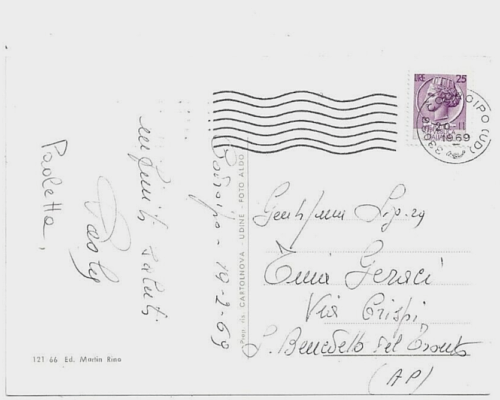 LIRE 25
CODROIPO (UD)
33033
20-11
1969
Codroipo - 19-2-69
infiniti saluti
Paoletta,
Prop. ris. CARTOLNOVA - UDINE - FOTO ALDO
121 66 Ed. Martin Bino
Gent/ma Sig.ra
Geraci
Via Crispi
S. Benedetto del Tronto
(AP)